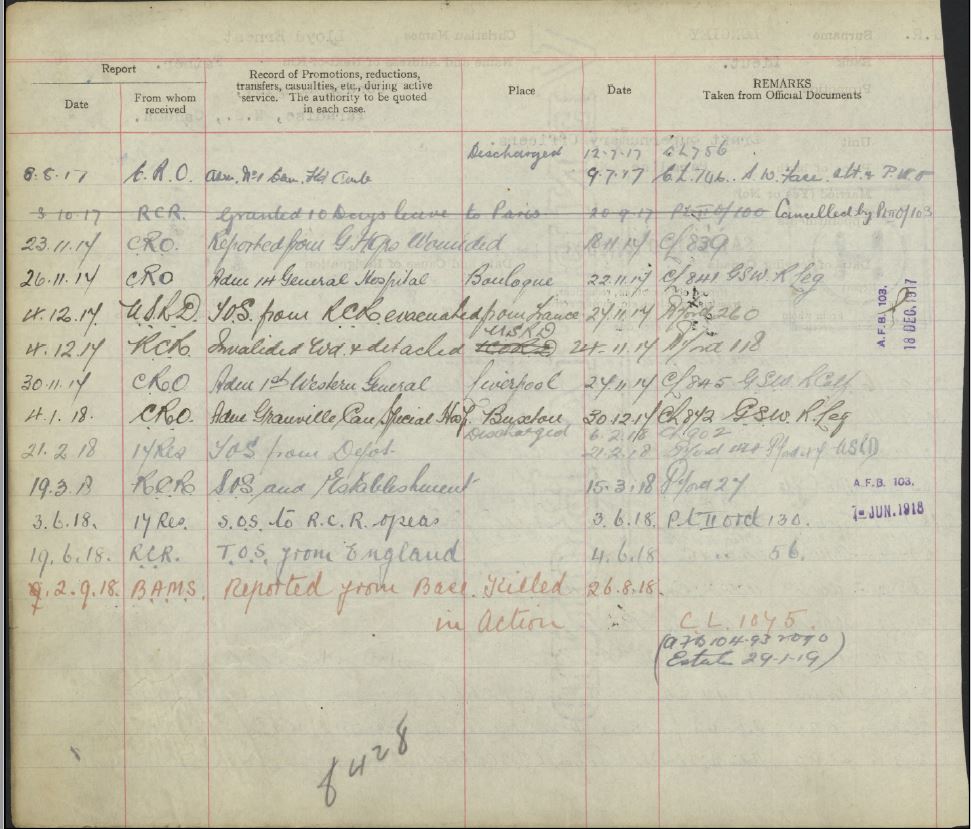 Report
Date
From whom received
Record of Promotions, reductions, transfers, casualties, etc., during active service. The authority to be quoted in each case.
Place
Date
REMARKS
Taken from Official Documents
Discharged 12-7-17 CL756
8.8.17 C.R.O. 9.7.17 CL.746. S.W. Face
3 10.17 RCR. Granted 10 Days leave to Paris 20.9.17 Pt II O/100 Cancelled by Pt II O/103
23.11.17 CRO. Reported from G.H.Qrs Wounded 11.17 C/L 839
26.11.17 CRO Adm 14 General Hospital Boulogne 22.11.17 C/L 841 GSW. R Leg
4.12.17. NSRD. TOS. from RCR evacuated from France 27.11.17 260
NSRD
4.12.17 RCR. Invalided Wd. & detached 24.11.17 118
30.11.17 CRO Adm 1st Western General Liverpool 27.11.17 C/L 845 GSW.
4.1.18. CRO. Adm Granville Can Special Hosp. Buxton 30.12.17 CL 872 GSW. R. Leg
Discharged 6.2.18 CL 902
21.2.18 17 Res TOS from Depot 21.2.18 NSRD
19.3.18 RCR SOS and Establishment 15.3.18 27
3.6.18. 17 Res. S.O.S. to R.C.R. o'seas 3.6.18. Pt II ord 130.
19.6.18. RCR. T.O.S. from England 4.6.18 " 56.
2.9.18. BAMS. Reported from Base Killed 26.8.18.
in Action C.L. 1075.
(AFB 104-93
Estates 29-1-19)
A.F.B. 103.
18 DEC. 1917
A.F.B. 103.
7- JUN. 1918
f 428